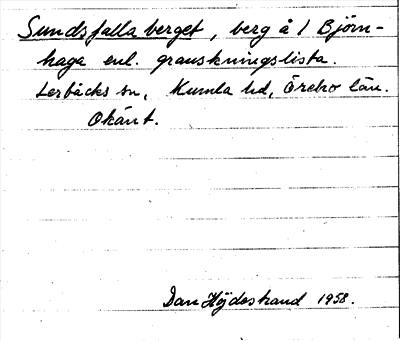 Sundsfalla berget, berg å 1 Björn-
haga enl. granskningslista.
Lerbäcks sn, Kumla hd, Örebro län.
Okänt.
Dan Höjdestrand 1958.